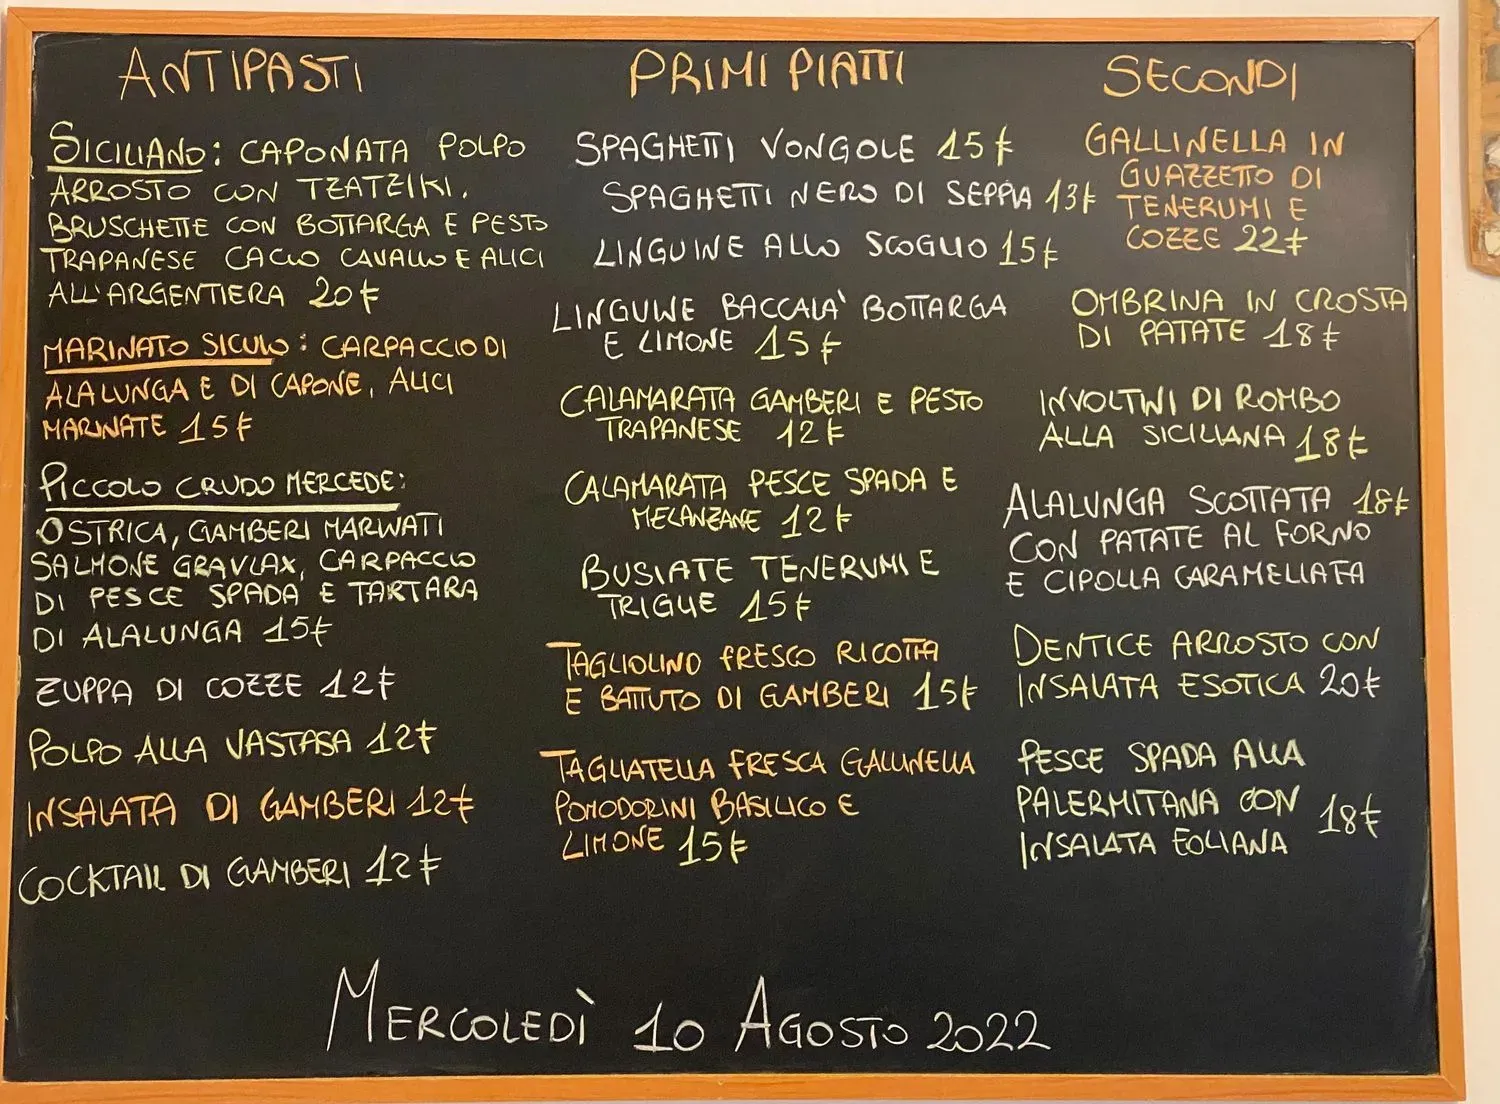 ANTIPASTI
SICILIANO: CAPONATA POLPO
ARROSTO CON TZATZIKI.
BRUSCHETTE CON BOTTARGA E PESTO
TRAPANESE CACIO CAVALLO E ALICI
ALL'ARGENTIERA 20€
MARINATO SICULO: CARPACCIO DI
ALALUNGA E DI CAPONE, ALICI
MARINATE 15€
PICCOLO CRUDO MERCEDE:
OSTRICA, GAMBERI MARINATI
SALMONE GRAVLAX, CARPACCIO
DI PESCE SPADA E TARTARA
DI ALALUNGA 15€
ZUPPA DI COZZE 12€
POLPO ALLA VASTASA 12€
INSALATA DI GAMBERI 12€
COCKTAIL DI GAMBERI 12€
PRIMI PIATTI
SPAGHETTI VONGOLE 15€
SPAGHETTI NERO DI SEPPIA 13€
LINGUINE ALLO SCOGLIO 15€
LINGUINE BACCALA' BOTTARGA
E LIMONE 15€
CALAMARATA GAMBERI E PESTO
TRAPANESE 12€
CALAMARATA PESCE SPADA E
MELANZANE 12€
BUSIATE TENERUMI E
TRIGLIE 15€
TAGLIOLINO FRESCO RICOTTA
E BATTUTO DI GAMBERI 15€
TAGLIATELLA FRESCA GALLINELLA
POMODORINI BASILICO E
LIMONE 15€
SECONDI
GALLINELLA IN
GUAZZETTO DI
TENERUMI E
COZZE 22€
OMBRINA IN CROSTA
DI PATATE 18€
INVOLTINI DI ROMBO
ALLA SICILIANA 18€
ALALUNGA SCOTTATA 18€
CON PATATE AL FORNO
E CIPOLLA CARAMELLATA
DENTICE ARROSTO CON
INSALATA ESOTICA 20€
PESCE SPADA ALLA
PALERMITANA CON 18€
INSALATA EOLIANA
MERCOLEDÌ 10 AGOSTO 2022